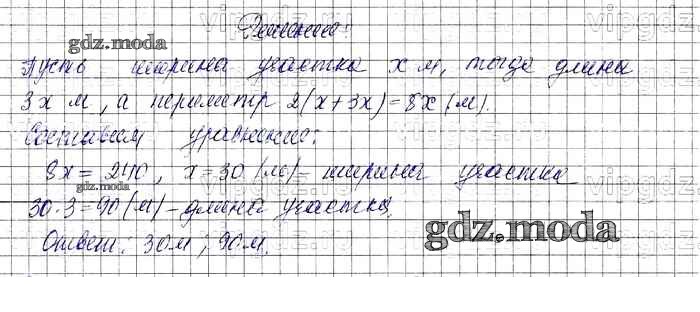 Решение:
gdz.moda
Пусть ширина участка x м, тогда длина
3x м, а периметр 2(x+3x)=8x (м).
Составим уравнение:
8x = 240, x = 30 (м) - ширина участка
gdz.moda
30·3=90 (м) - длина участка.
gdz.moda
Ответ: 30м; 90м.